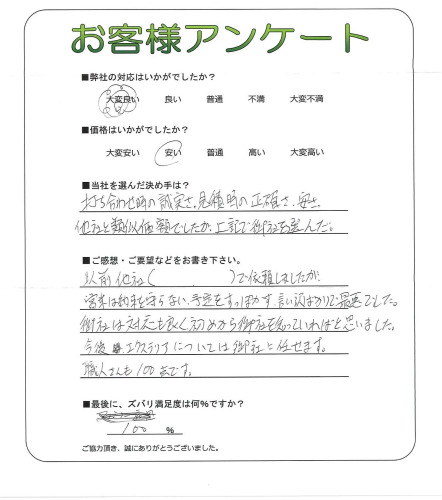 お客様アンケート
■弊社の対応はいかがでしたか?
大変良い 良い 普通 不満 大変不満
■価格はいかがでしたか?
大変安い 安い 普通 高い 大変高い
■当社を選んだ決め手は?
打ち合わせ時の誠実さ、見積時の正確さ、安さ、
他社と類似価額でしたが、上記で御社を選んだ。
■ご感想・ご要望などをお書き下さい。
以前他社( )で依頼しましたが、
営業は納期を守らない、予定をすっぽかす、言い訳ばかりで最悪でした。
御社は対応も良く初めから御社を知っていればと思いました。
今後エクステリアについては御社に任せます。
職人さんも100点です。
■最後に、ズバリ満足度は何%ですか?
100 %
ご協力頂き、誠にありがとうございました。